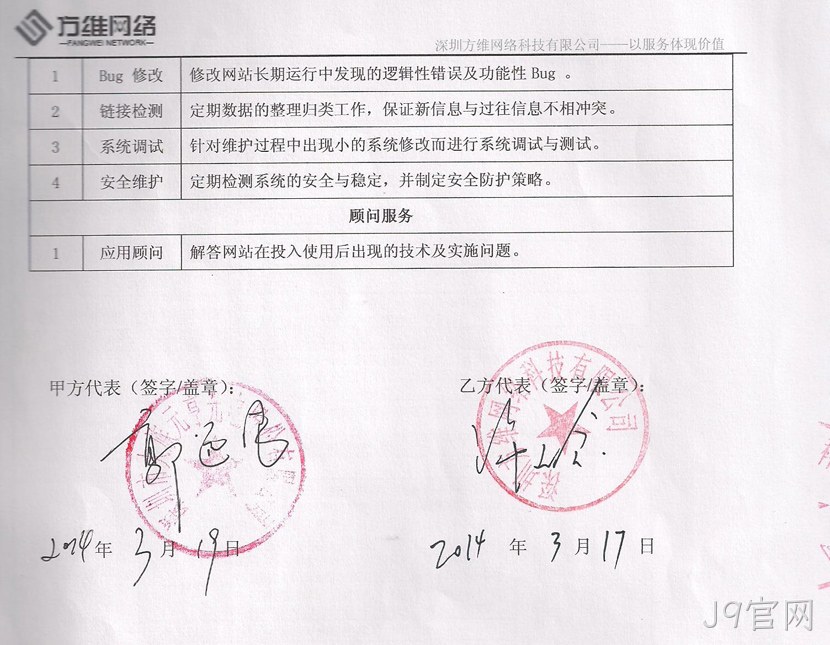 方维网络
FANGWEI NETWORK
深圳方维网络科技有限公司——以服务体现价值
1 Bug 修改 修改网站长期运行中发现的逻辑性错误及功能性 Bug 。
2 链接检测 定期数据的整理归类工作，保证新信息与过往信息不相冲突。
3 系统调试 针对维护过程中出现小的系统修改而进行系统调试与测试。
4 安全维护 定期检测系统的安全与稳定，并制定安全防护策略。
顾问服务
1 应用顾问 解答网站在投入使用后出现的技术及实施问题。
甲方代表（签字/盖章）： 乙方代表（签字/盖章）：
2014 年 3 月 19 日 2014 年 3 月 17 日
J9官网